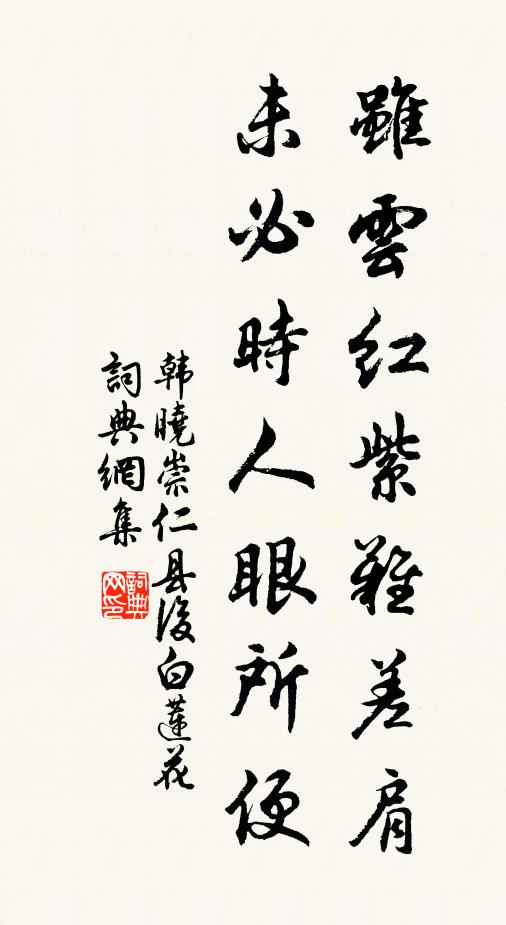 雖雲红紫難差肩
未必時人眼所便
韩曉崇仁县後白蓮花
詞典網集
詞典网印